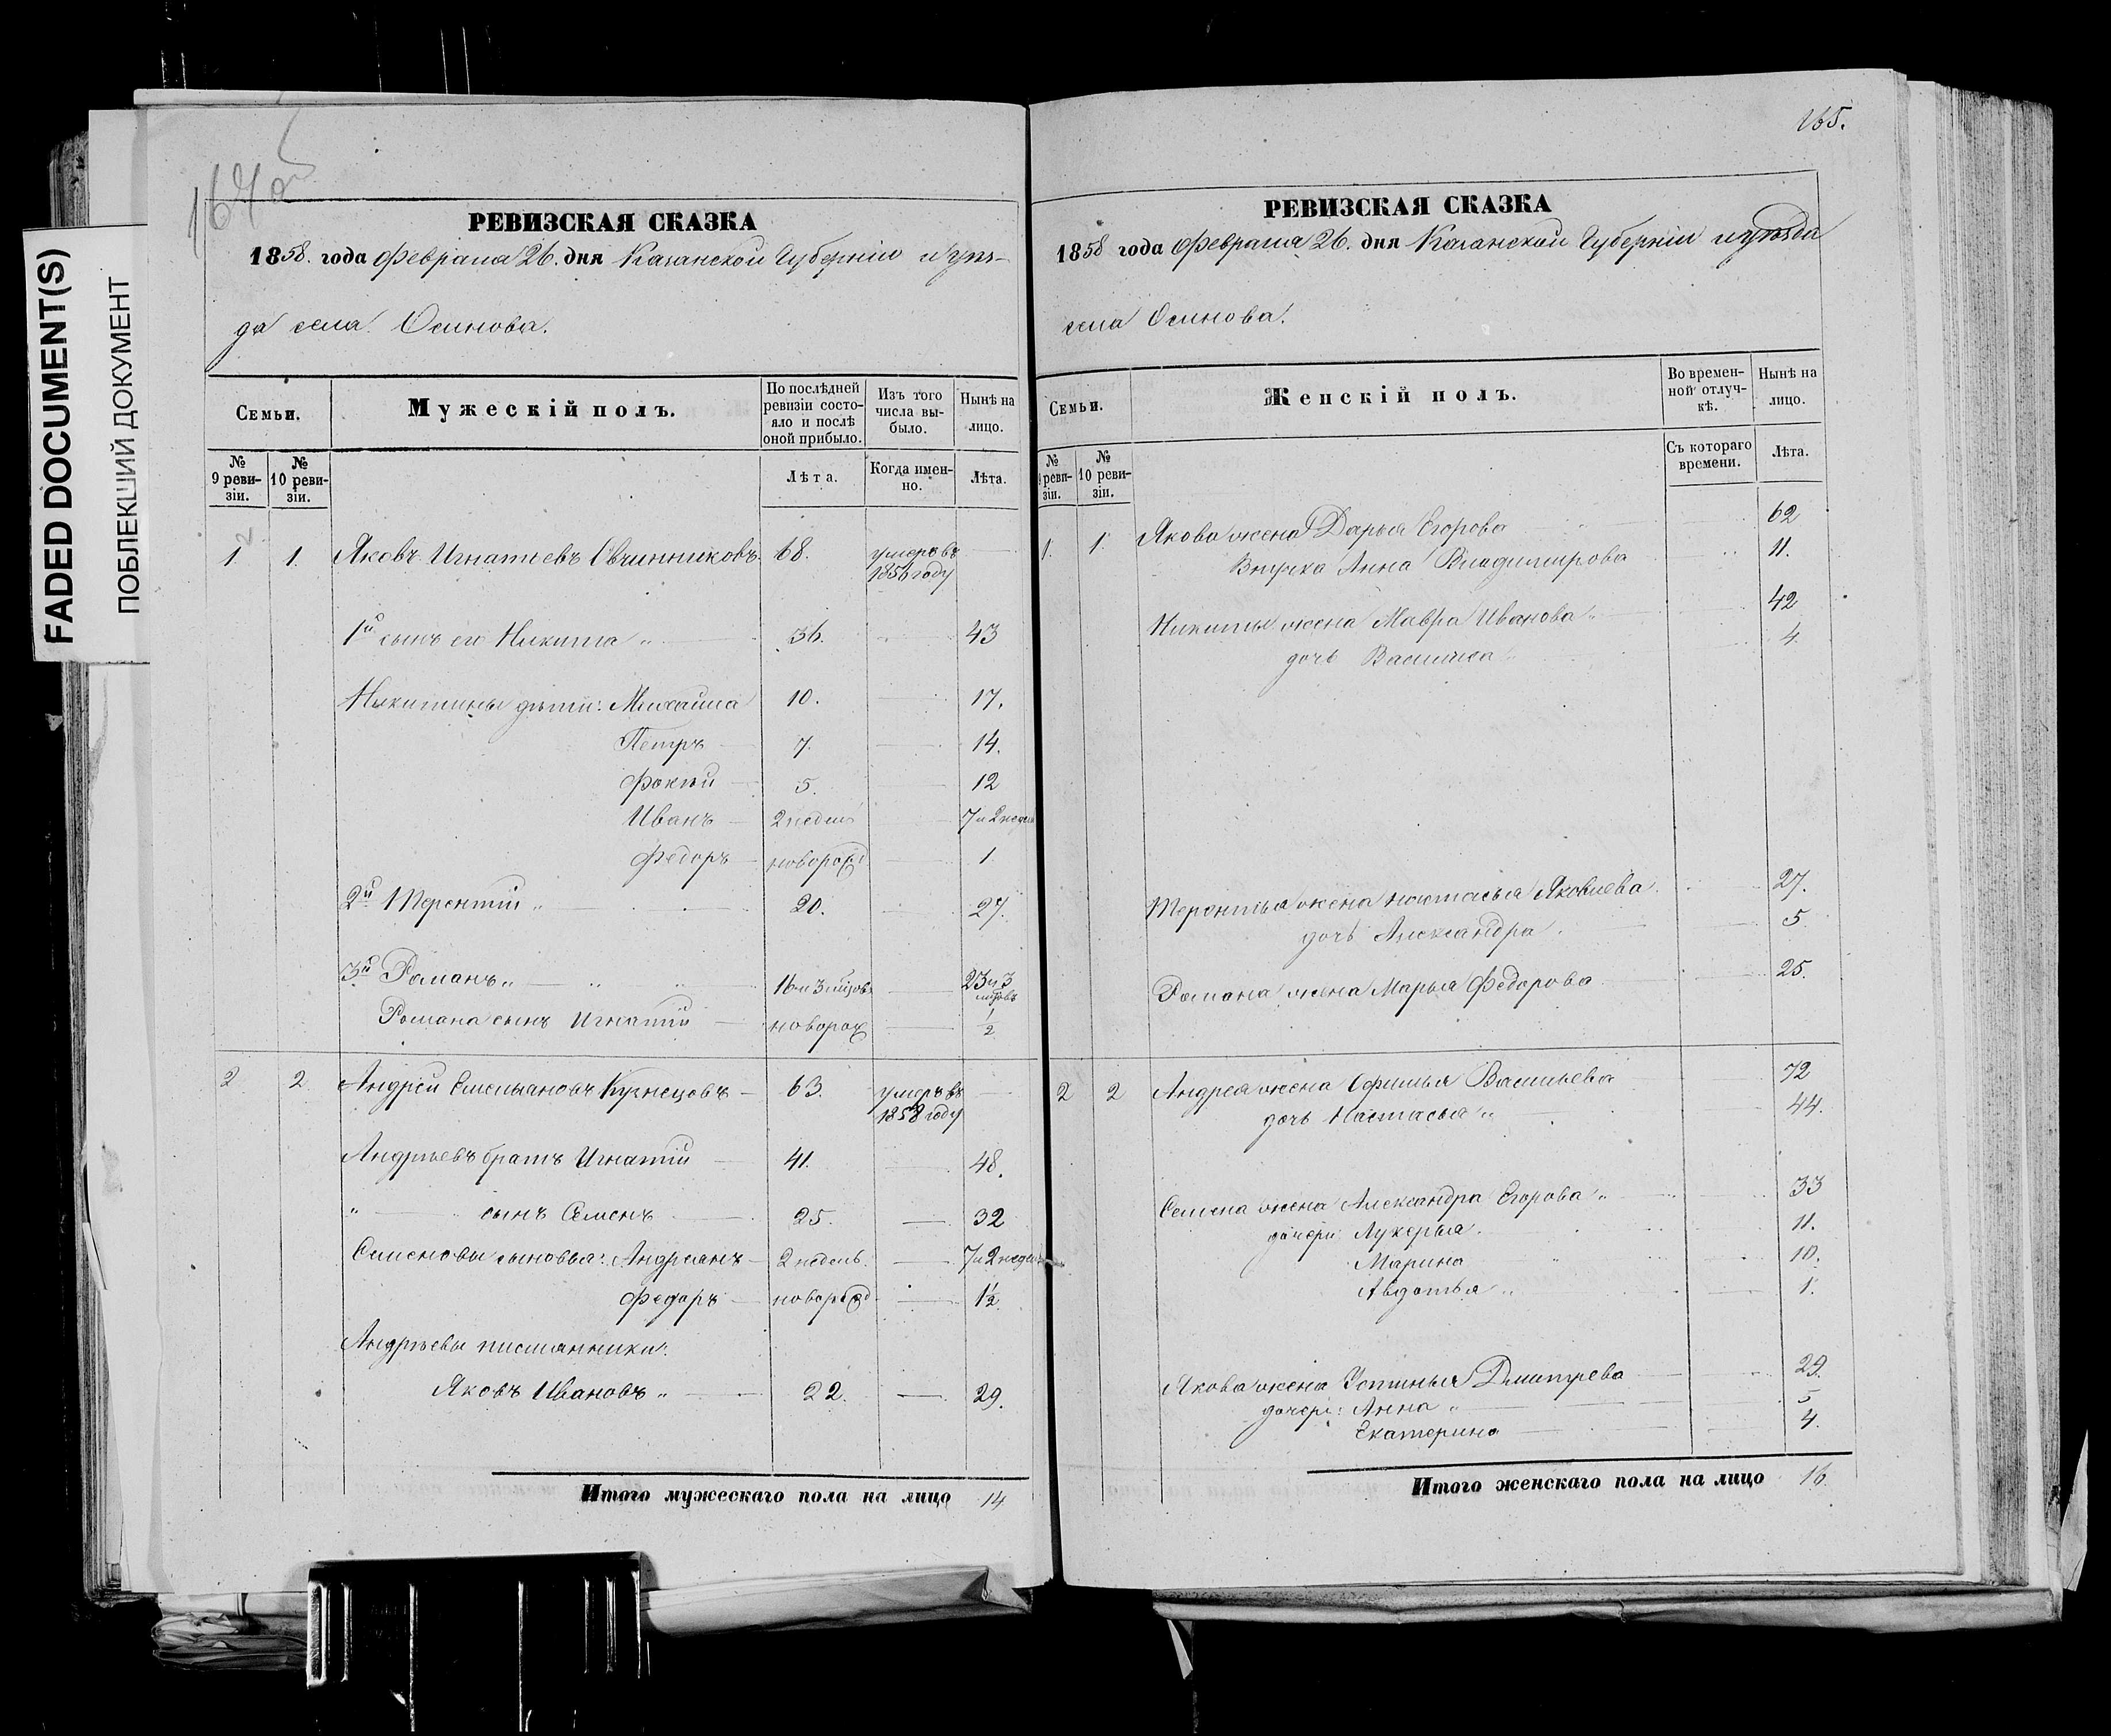 FADED DOCUMENT(S)
ПОБЛЕКШИЙ ДОКУМЕНТ
РЕВИЗСКАЯ СКАЗКА
1858. года Февраля 26. дня Казанской Губерніи и уѣз-
да села Осинова.
Семьи.
Мужескій полъ.
По послѣдней ревизіи состояло и послѣ оной прибыло.
Изъ того числа выбыло.
Нынѣ на лицо.
№ 9 ревизіи.
№ 10 ревизіи.
Лѣта.
Когда именно.
Лѣта.
1. 1. Яковъ Игнатьевъ Овчинниковъ. 68. умеръ въ 1856 году
1й сынъ его Никита „ 36. 43
Никитины дѣти: Михаила 10. 17.
Петръ 7. 14.
Фокѣй 5. 12
Иванъ 2 недель 7 и 2 недел
Федоръ новорожд 1
2й Терентій „ 20. 27.
3й Романъ „ 16 и 3 мѣсцовъ 23 и 3 мѣсцовъ
Романа сынъ Игнатій новорож 1/2
2 2 Андрей Емельяновъ Кузнецовъ 63. умеръ въ 1858 году
Андреевъ братъ Игнатій 41. 48.
„ сынъ Семенъ 25. 32
Семеновы сыновья: Андреанъ 2 недель. 7 и 2 недел
Федоръ новорожд 1 1/2
Андреевы писмянники:
Яковъ Ивановъ „ 22. 29.
Итого мужескаго пола на лицо 14
165.
РЕВИЗСКАЯ СКАЗКА
1858 года Февраля 26. дня Казанской Губерніи и уѣзда
села Осинова.
Семьи.
Женскій полъ.
Во временной отлучкѣ.
Нынѣ на лицо.
№ 9 ревизіи.
№ 10 ревизіи.
Съ котораго времени.
Лѣта.
1. 1. Якова жена Дарья Егорова 62
Внучка Анна Владимирова 11.
Никиты жена Мавра Иванова „ 42
дочь Василиса „ 4.
Терентья жена Настасья Яковлева 27.
дочь Александра. 5
Романа жена Марья Федорова 25.
2 2 Андрея жена Офимья Васильева 72
дочь Настасья „ 44.
Семена жена Александра Егорова „ 33
дочери Лукерья. 11.
Марина 10.
Авдотья „ 1.
Якова жена Устинья Дмитрева 29.
дочери: Анна „ 5
Екатерина 4.
Итого женскаго пола на лицо 16.